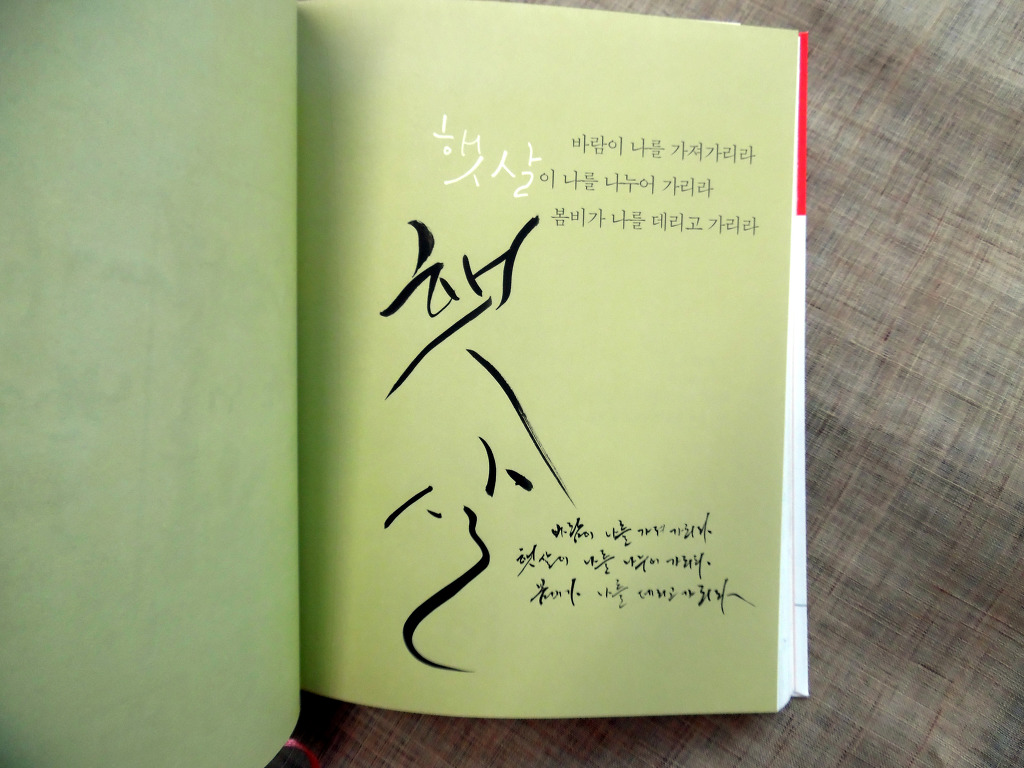 바람이 나를 가져가리라
햇살이 나를 나누어 가리라
봄비가 나를 데리고 가리라
햇
살
바람이 나를 가져가리라.
햇살이 나를 나누어 가리라.
봄비가 나를 데리고 가리라